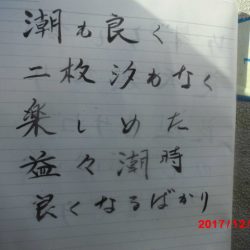 潮も良く
二枚汐もなく
楽しめた
益々潮時
良くなるばかり
2017/12